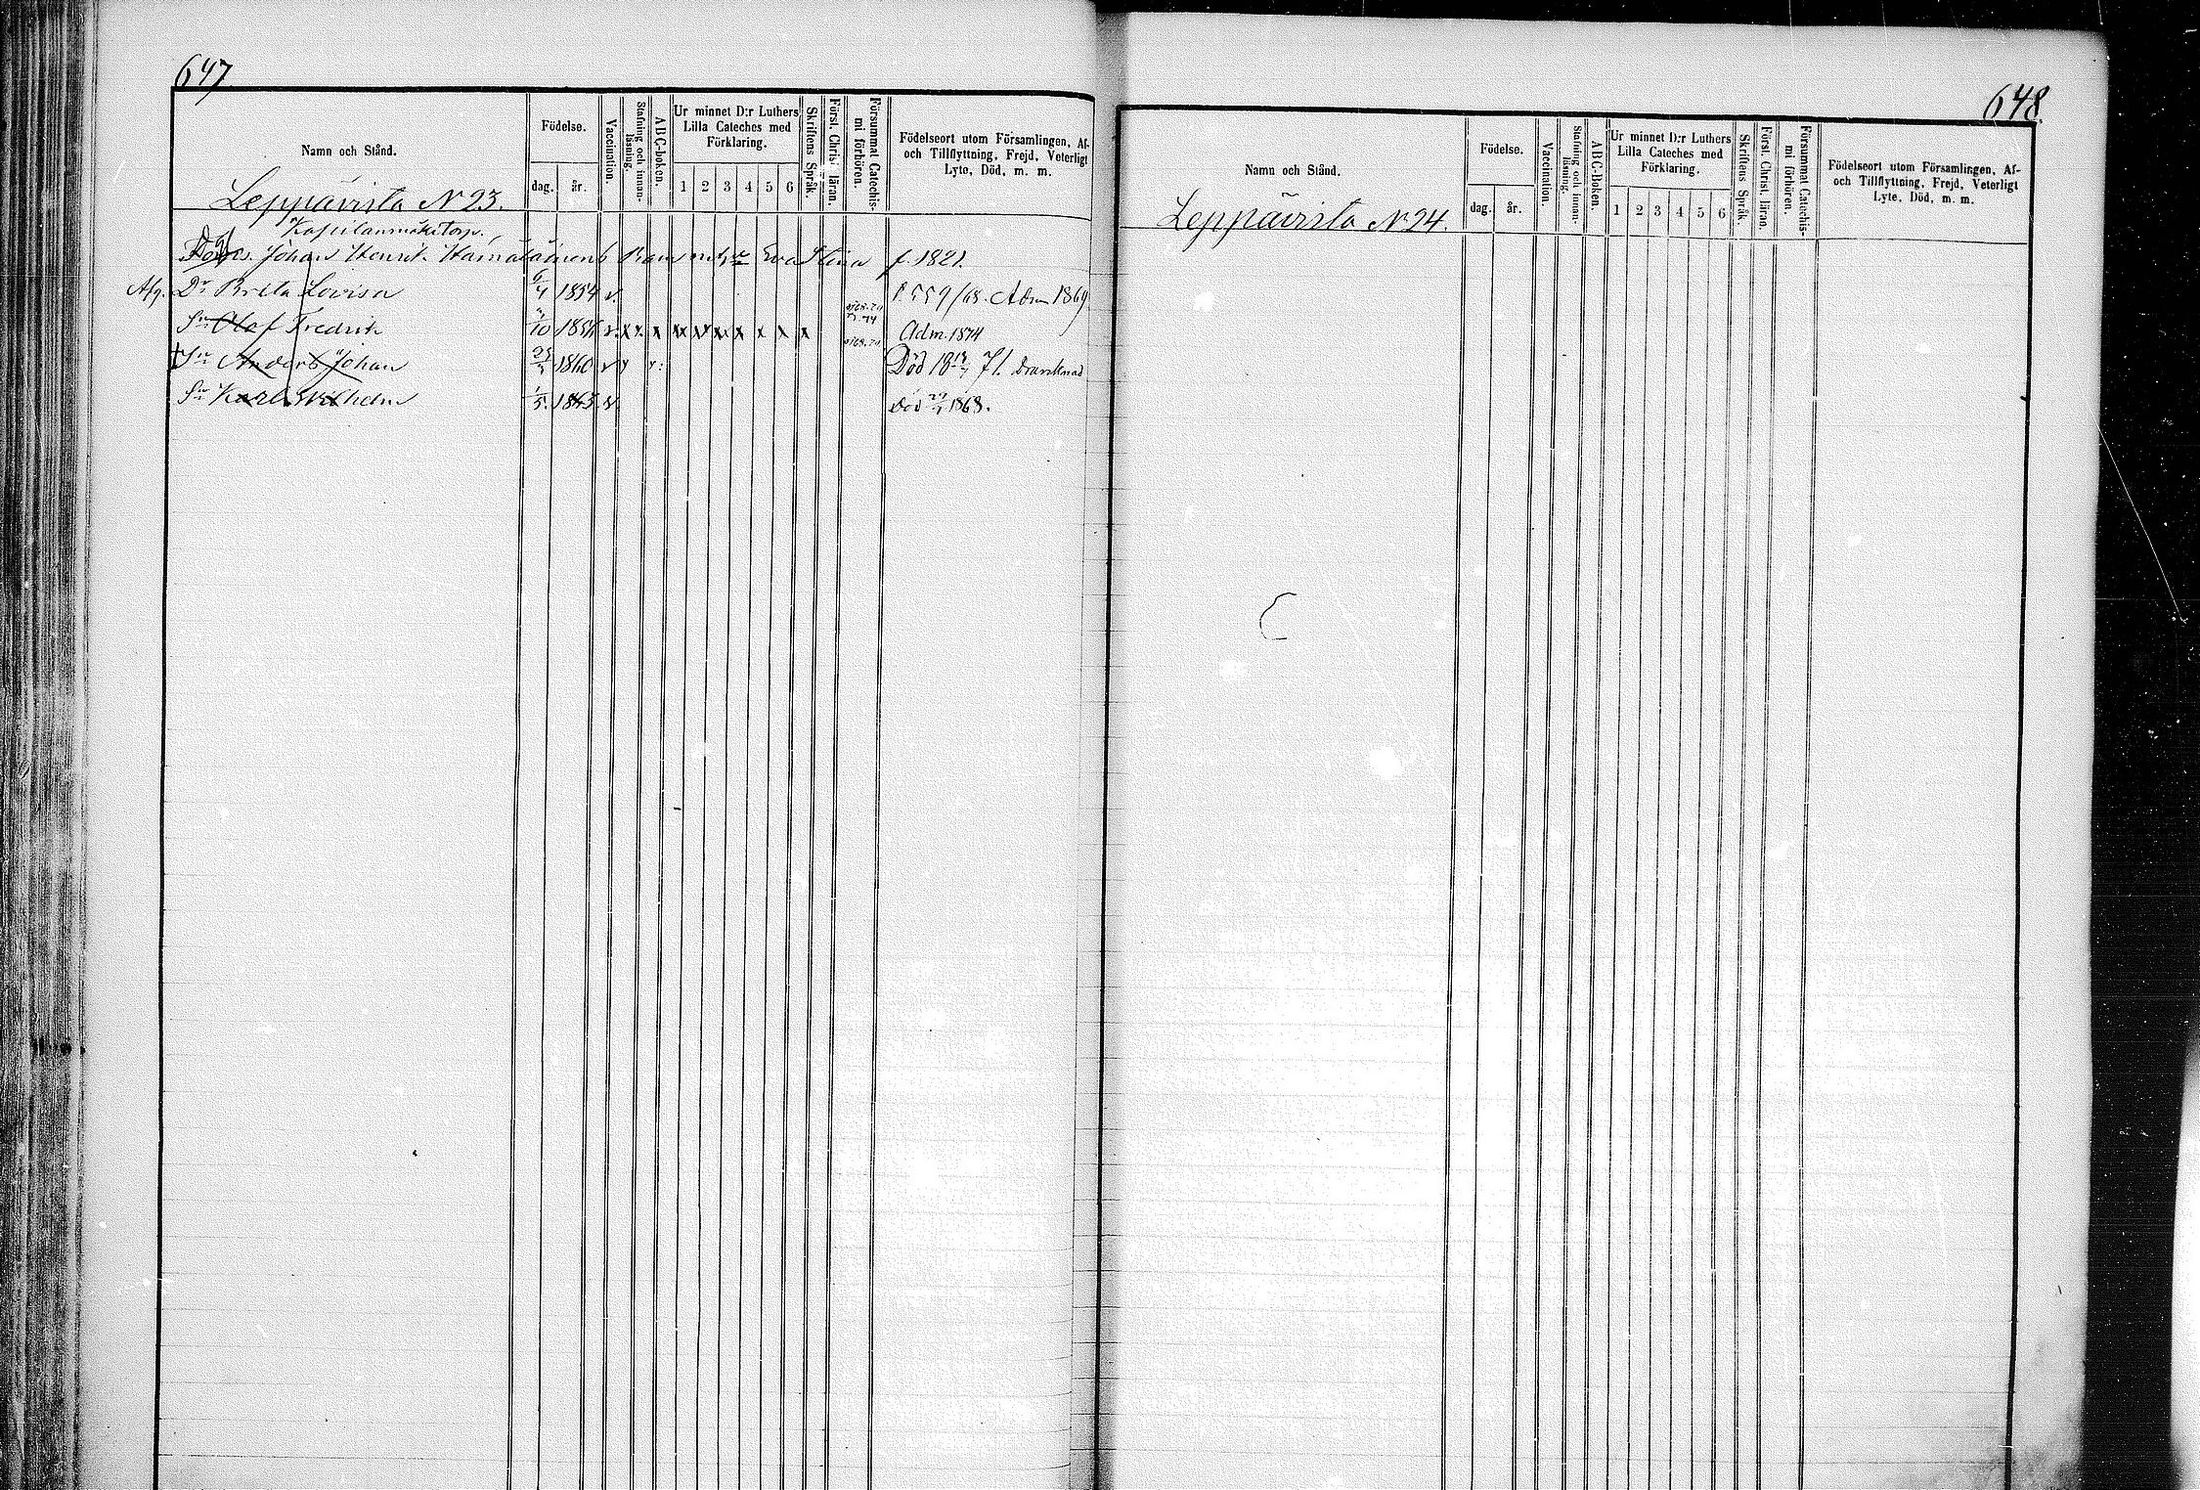 647
Namn och Stånd.
Födelse.
dag.
år.
Vaccination.
Stafning och innanläsning.
ABC-boken.
Ur minnet D:r Luthers
Lilla Cateches med
Förklaring.
1 2 3 4 5 6
Skriftens Språk.
Först. Chris. läran.
Försummat Catechismi förhören.
Födelseort utom Församlingen, Af-
och Tillflyttning, Frejd, Veterligt
Lyte, Död, m. m.
Leppävirta N 23.
Johan Henrik Barn med Eva Stina f. 1821.
Afg. Dr Brita Lovisa 6/4 1854 v. P. 559/68. Adm 1869
Sn Olof Fredrik /10 v. x x x x x x x x x x Adm. 1874
Sn Anders Johan 1860 v Död
Sn Karl Wilhelm 1/5. 1865. v. Död 1868.
648.
Namn och Stånd.
Födelse.
dag.
år.
Vaccination.
Stafning och innanläsning.
ABC-Boken.
Ur minnet D:r Luthers
Lilla Cateches med
Förklaring.
1 2 3 4 5 6
Skriftens Språk.
Först. Christ. läran.
Försummat Catechismi förhören.
Födelseort utom Församlingen, Af-
och Tillflyttning, Frejd, Veterligt
Lyte, Död, m. m.
Leppävirta N 24.